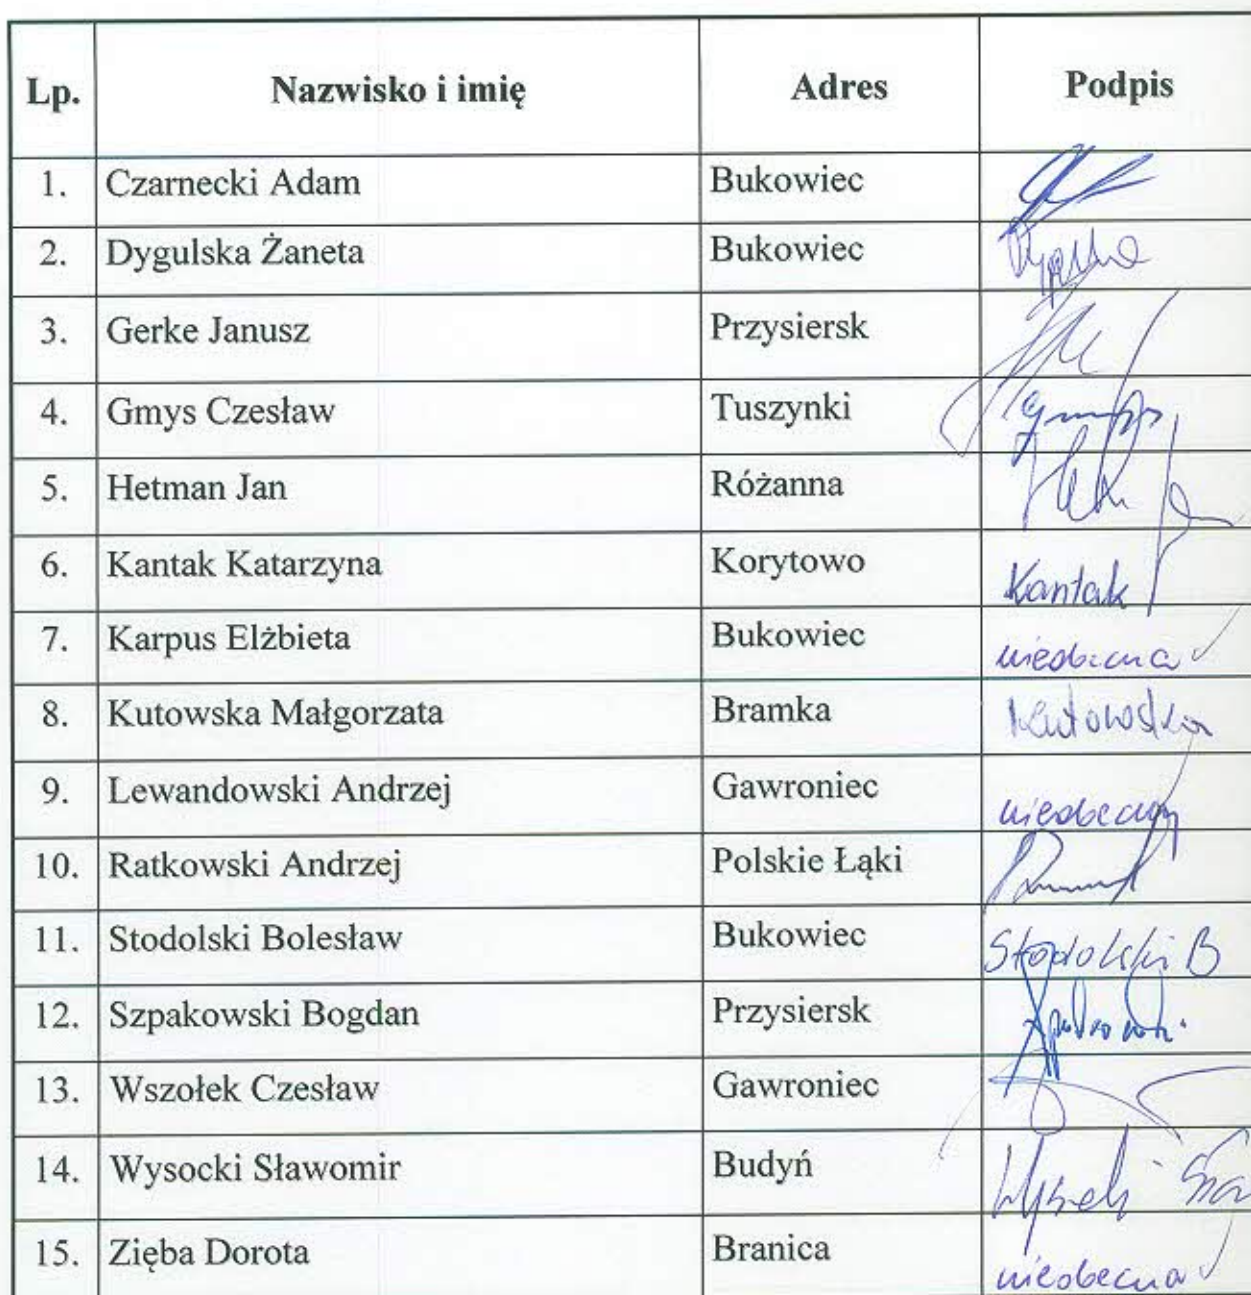 Lp. Nazwisko i imię Adres Podpis
1. Czarnecki Adam Bukowiec
2. Dygulska Żaneta Bukowiec
3. Gerke Janusz Przysiersk
4. Gmys Czesław Tuszynki
5. Hetman Jan Różanna
6. Kantak Katarzyna Korytowo Kantak
7. Karpus Elżbieta Bukowiec nieobecna
8. Kutowska Małgorzata Bramka Kutowska
9. Lewandowski Andrzej Gawroniec nieobecny
10. Ratkowski Andrzej Polskie Łąki
11. Stodolski Bolesław Bukowiec Stodolski B
12. Szpakowski Bogdan Przysiersk
13. Wszołek Czesław Gawroniec
14. Wysocki Sławomir Budyń
15. Zięba Dorota Branica nieobecna